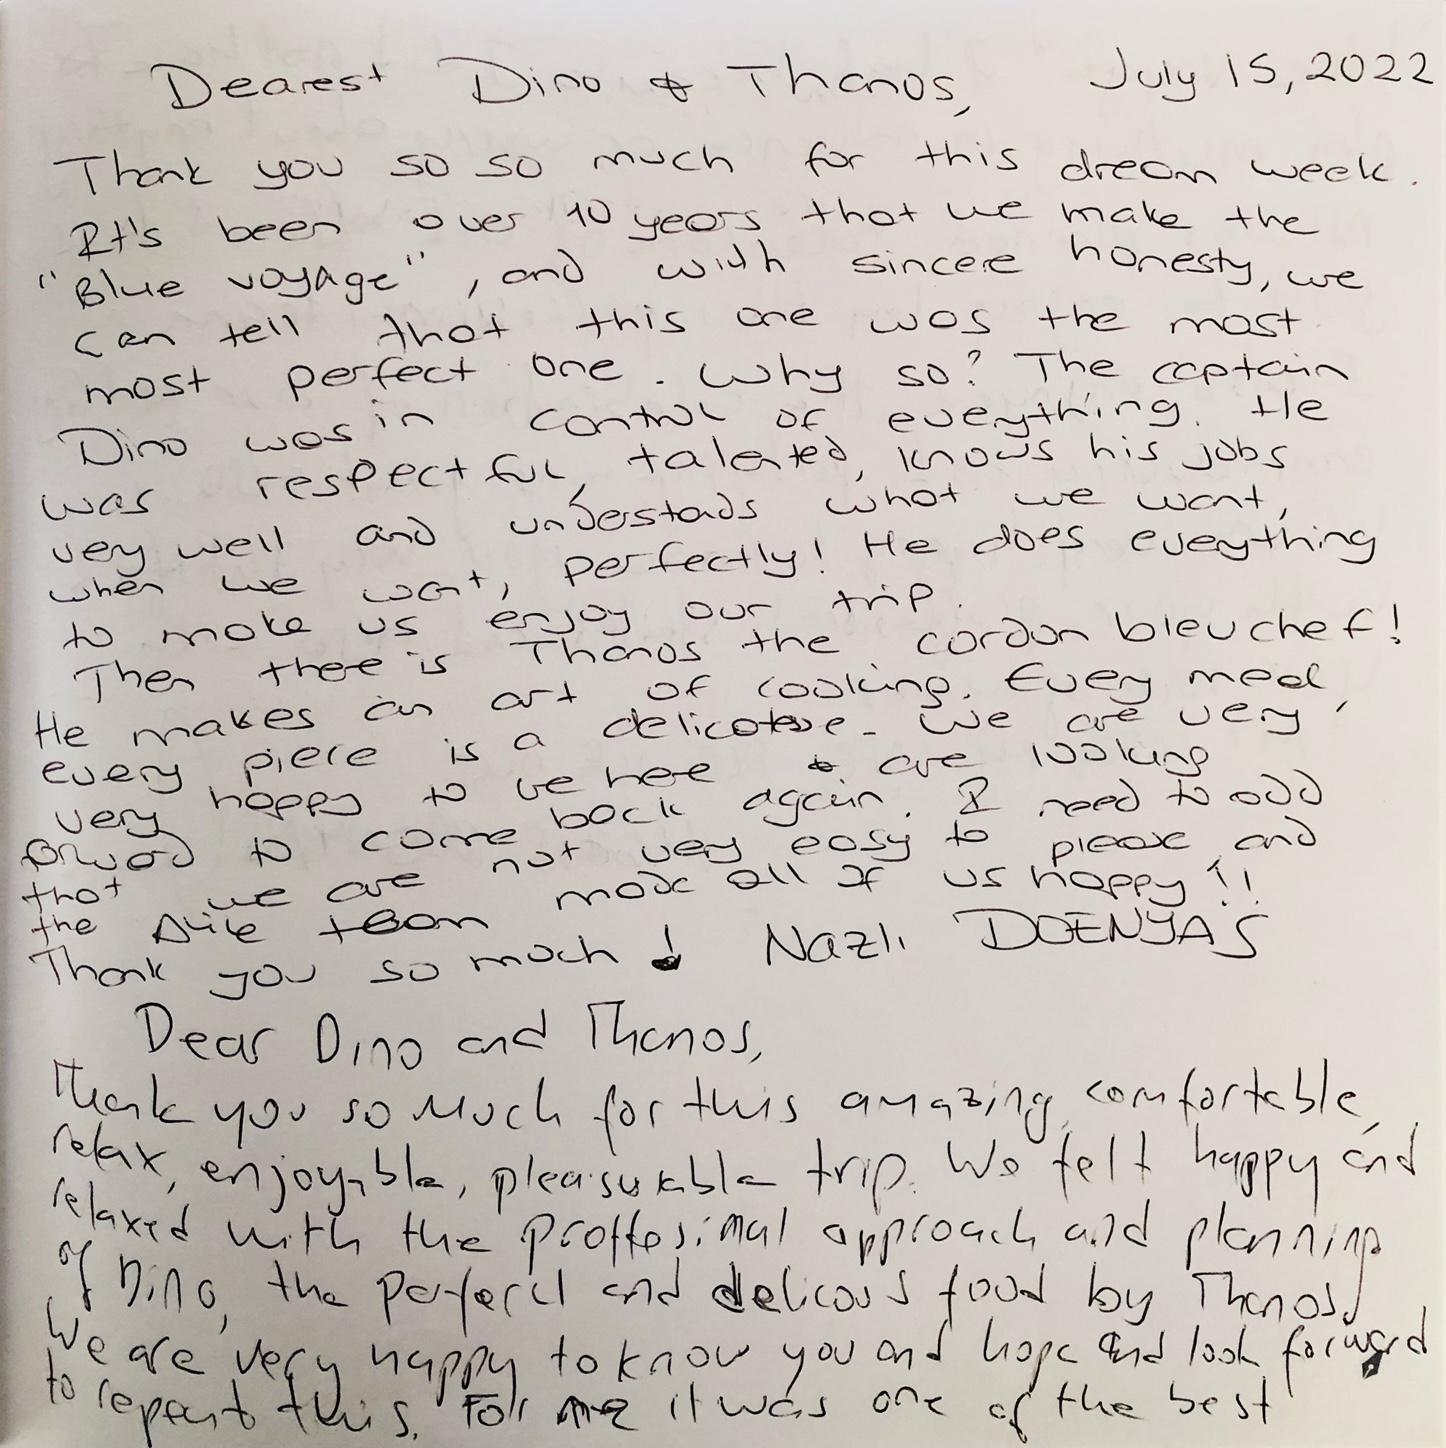 Dearest Dino & Thanos, July 15, 2022
Thank you so so much for this dream week.
It's been over 10 years that we make the
"Blue voyage", and with sincere honesty, we
can tell that this one was the most
most perfect one. Why so? The captain
Dino was in control of everything. He
was respectful, talented, knows his jobs
very well and understads what we want,
when we want, perfectly! He does everything
to make us enjoy our trip.
Then there is Thanos the cordon bleu chef!
He makes an art of cooking. Every meal,
every piece is a delicatesse. We are very
very happy to be here & are looking
forward to come back again. I need to add
that we are not very easy to please and
the team made all of us happy!!
Thank you so much! Nazlı DOENYAS
Dear Dino and Thanos,
Thank you so much for this amazing, comfortable,
relax, enjoyable, pleasurable trip. We felt happy and
relaxed with the proffesional approach and planning
of Dino, the perferct and delicous food by Thanos.
We are very happy to know you and hope and look forward
to repeat this. For me it was one of the best